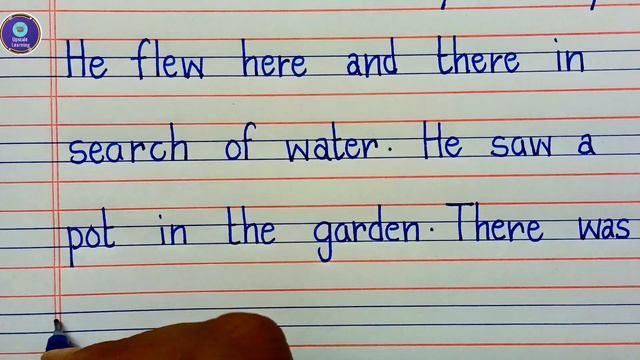 Upscale
Learning
He flew here and there in
search of water. He saw a
pot in the garden. There was